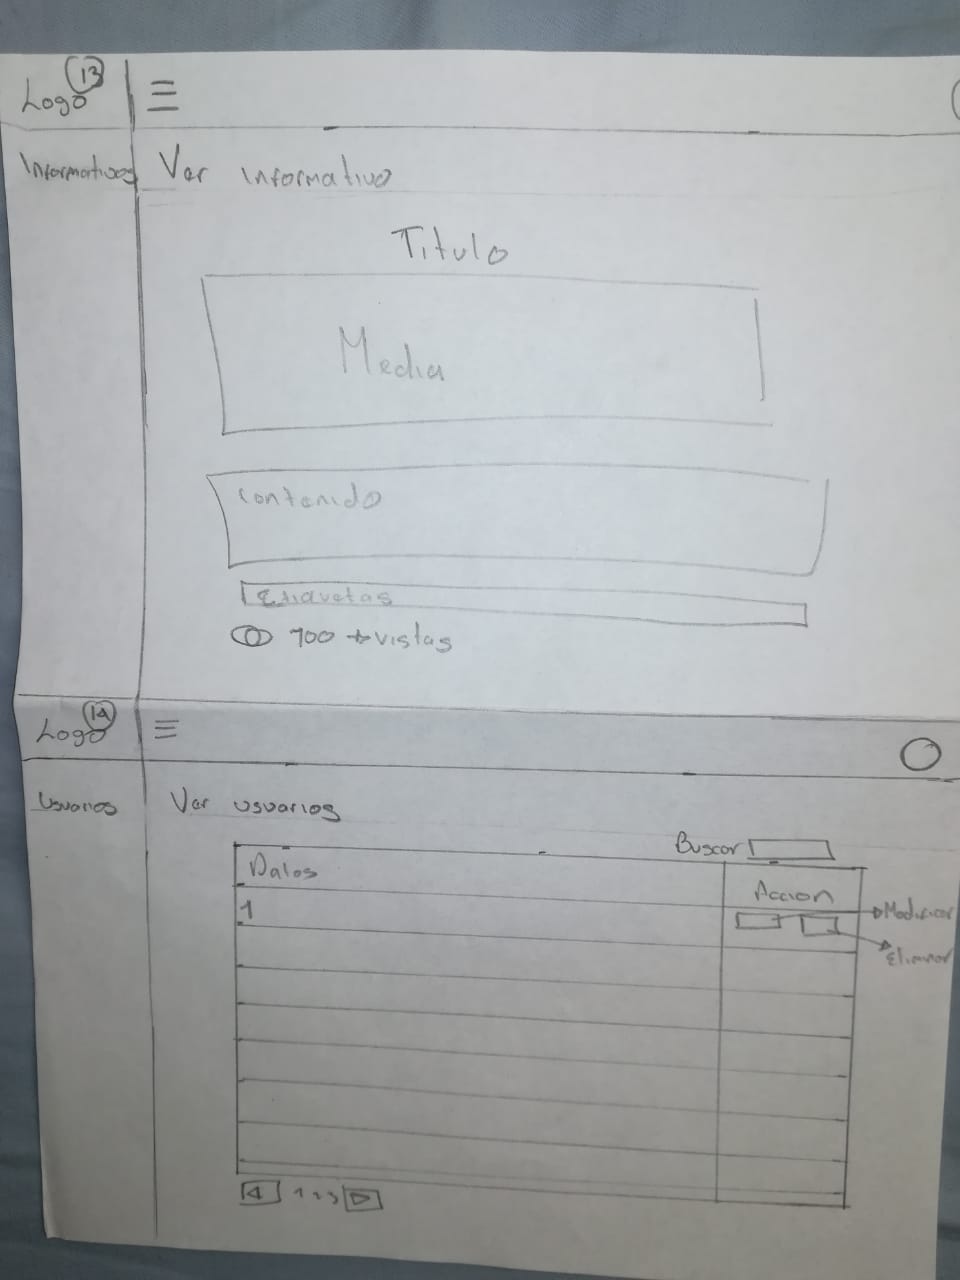 13
Logo
Informativos
Ver informativo
Titulo
Media
Contenido
Etiquetas
100 + vistas
14
Logo
Usuarios
Ver usuarios
Buscar
Datos
Accion
1
Modificar
Eliminar
1 2 3